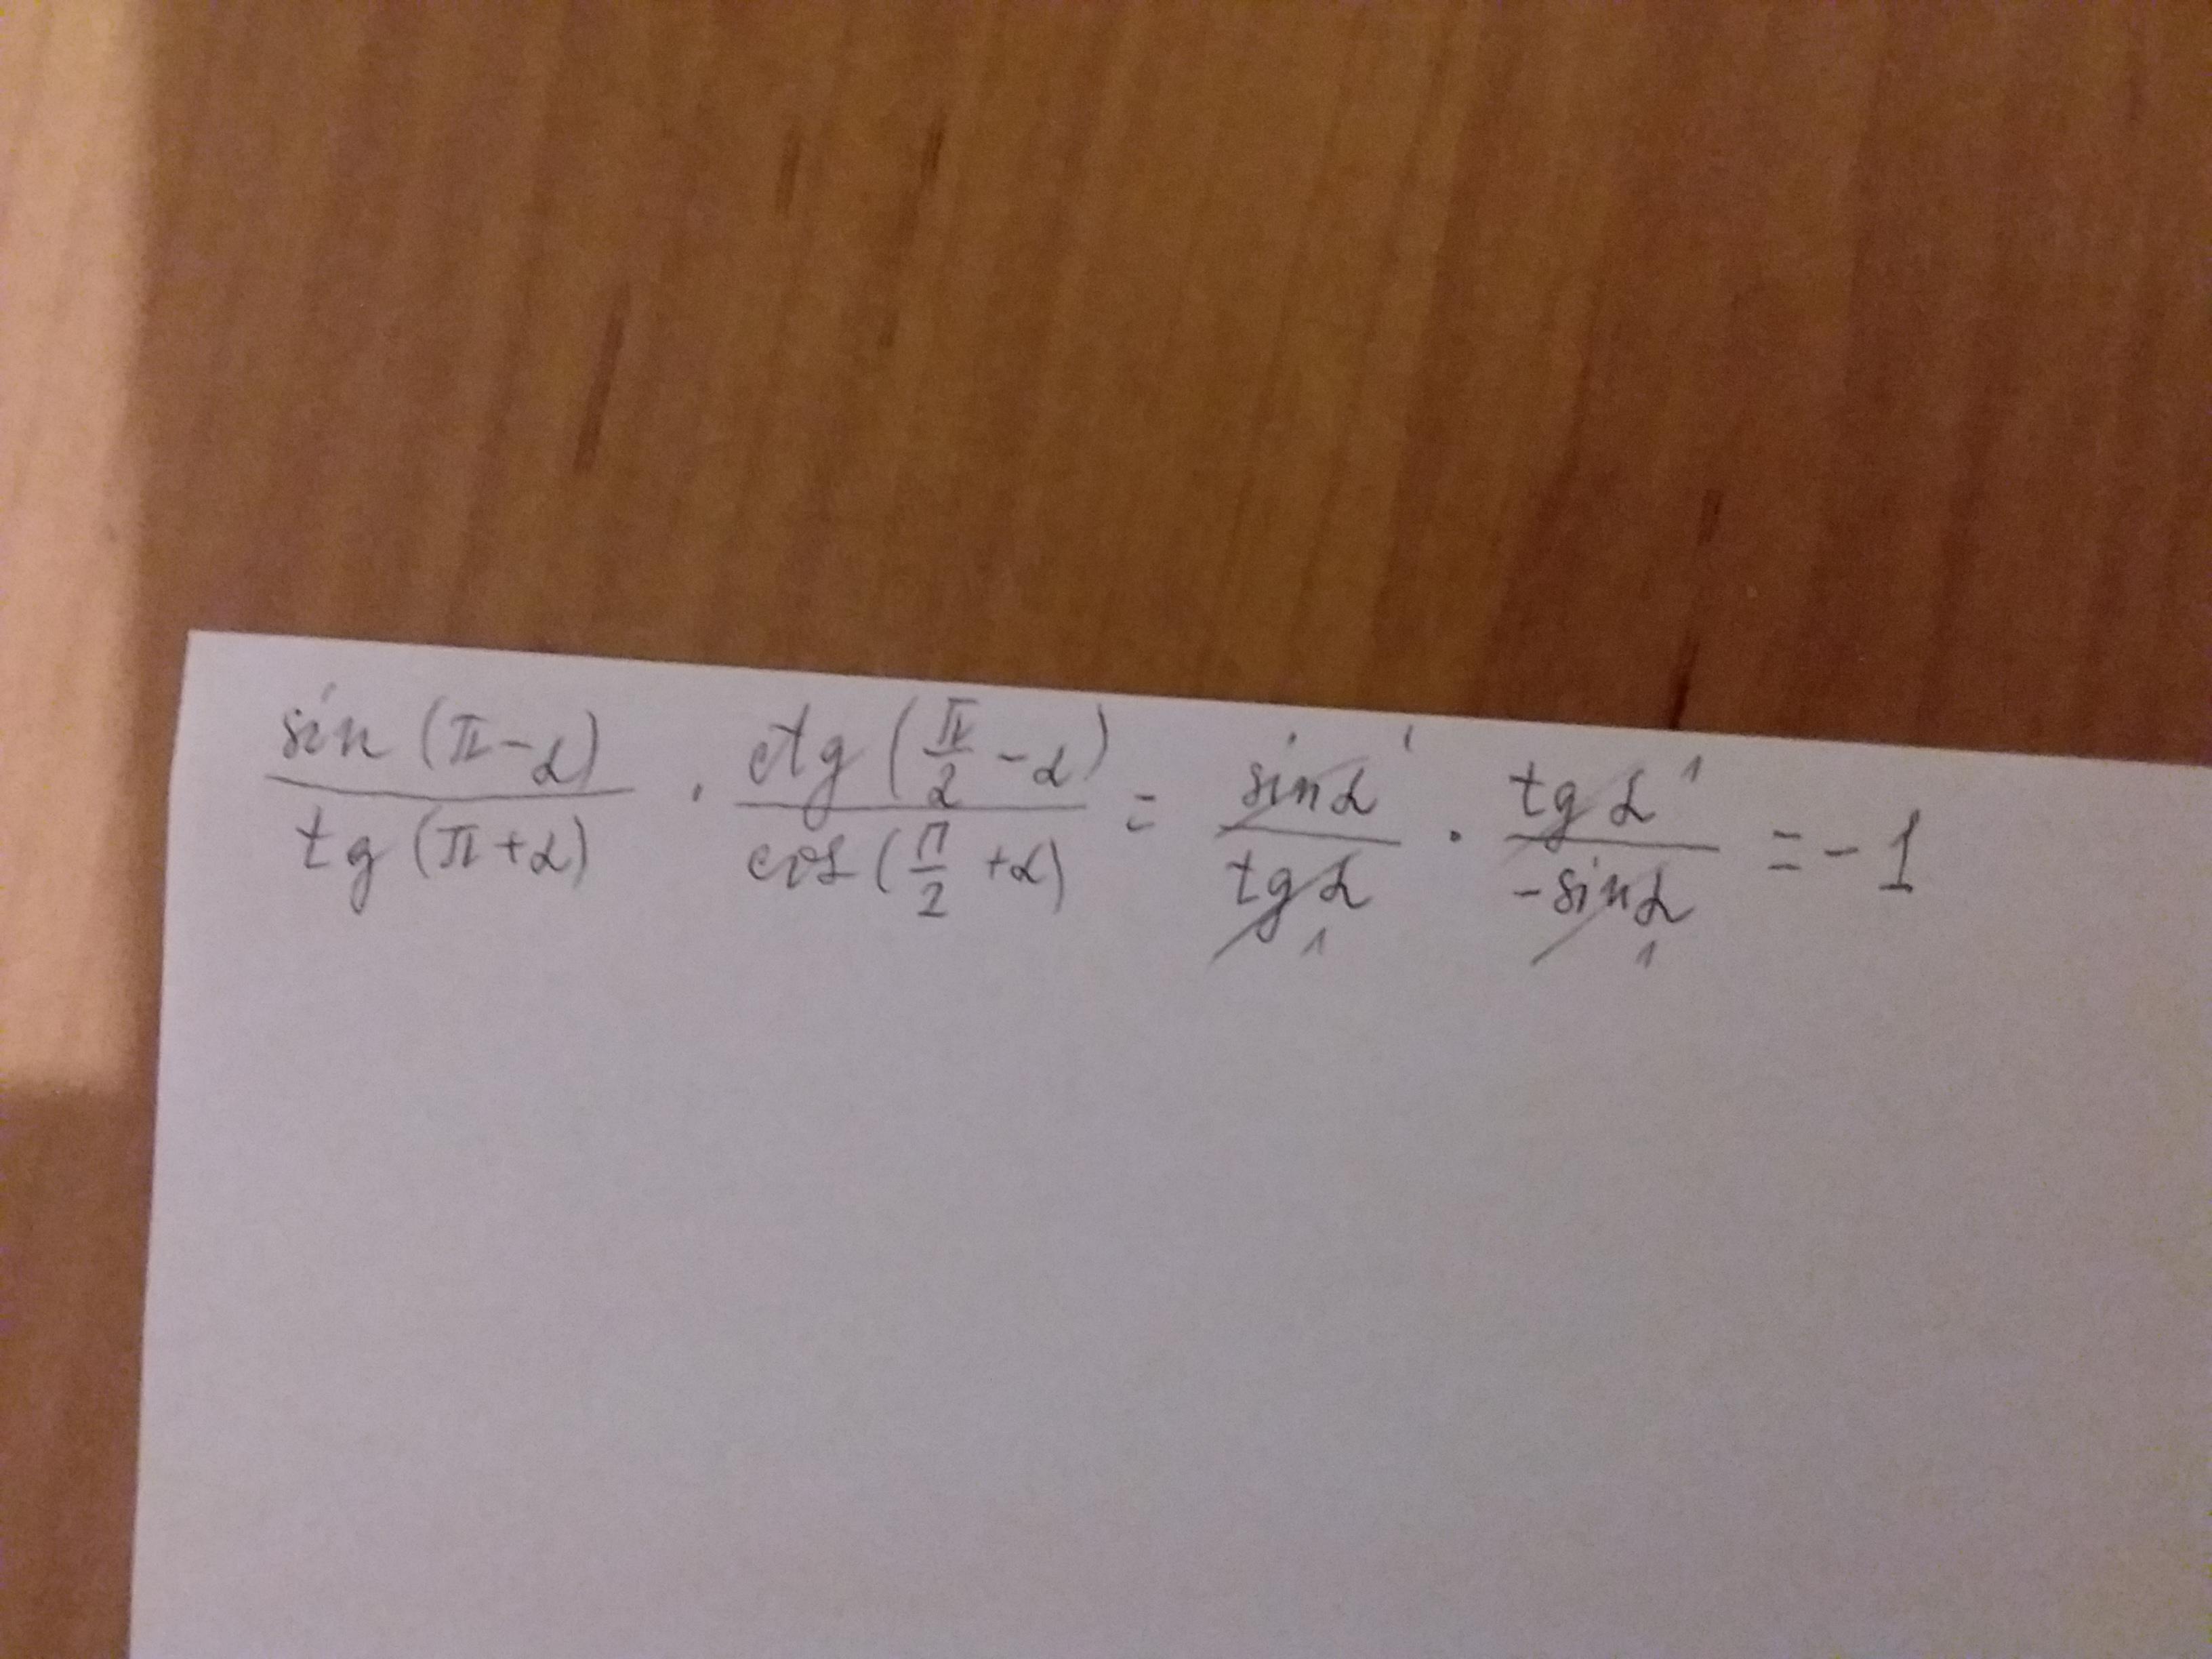 sin(π-α)/tg(π+α) · ctg(π/2-α)/cos(π/2+α) = sinα 1/tgα 1 · tgα 1/-sinα 1 = -1